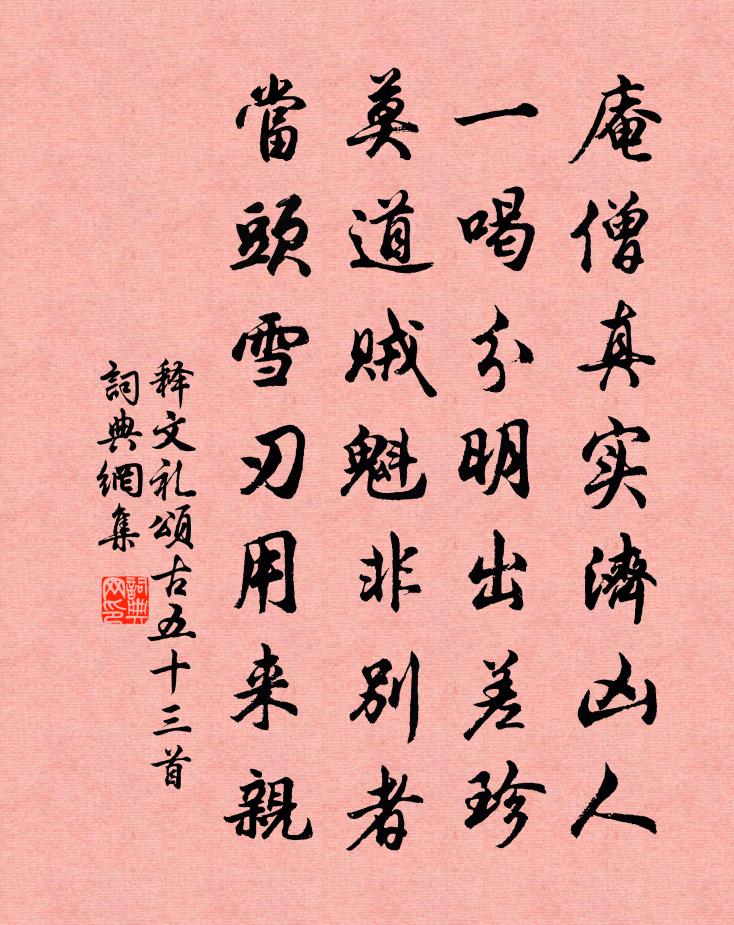 庵僧真实濟凶人
一喝分明出差珍
莫道贼魁非别者
當頭雪刃用来親
释文礼頌古五十三首
詞典網集
詞典網印